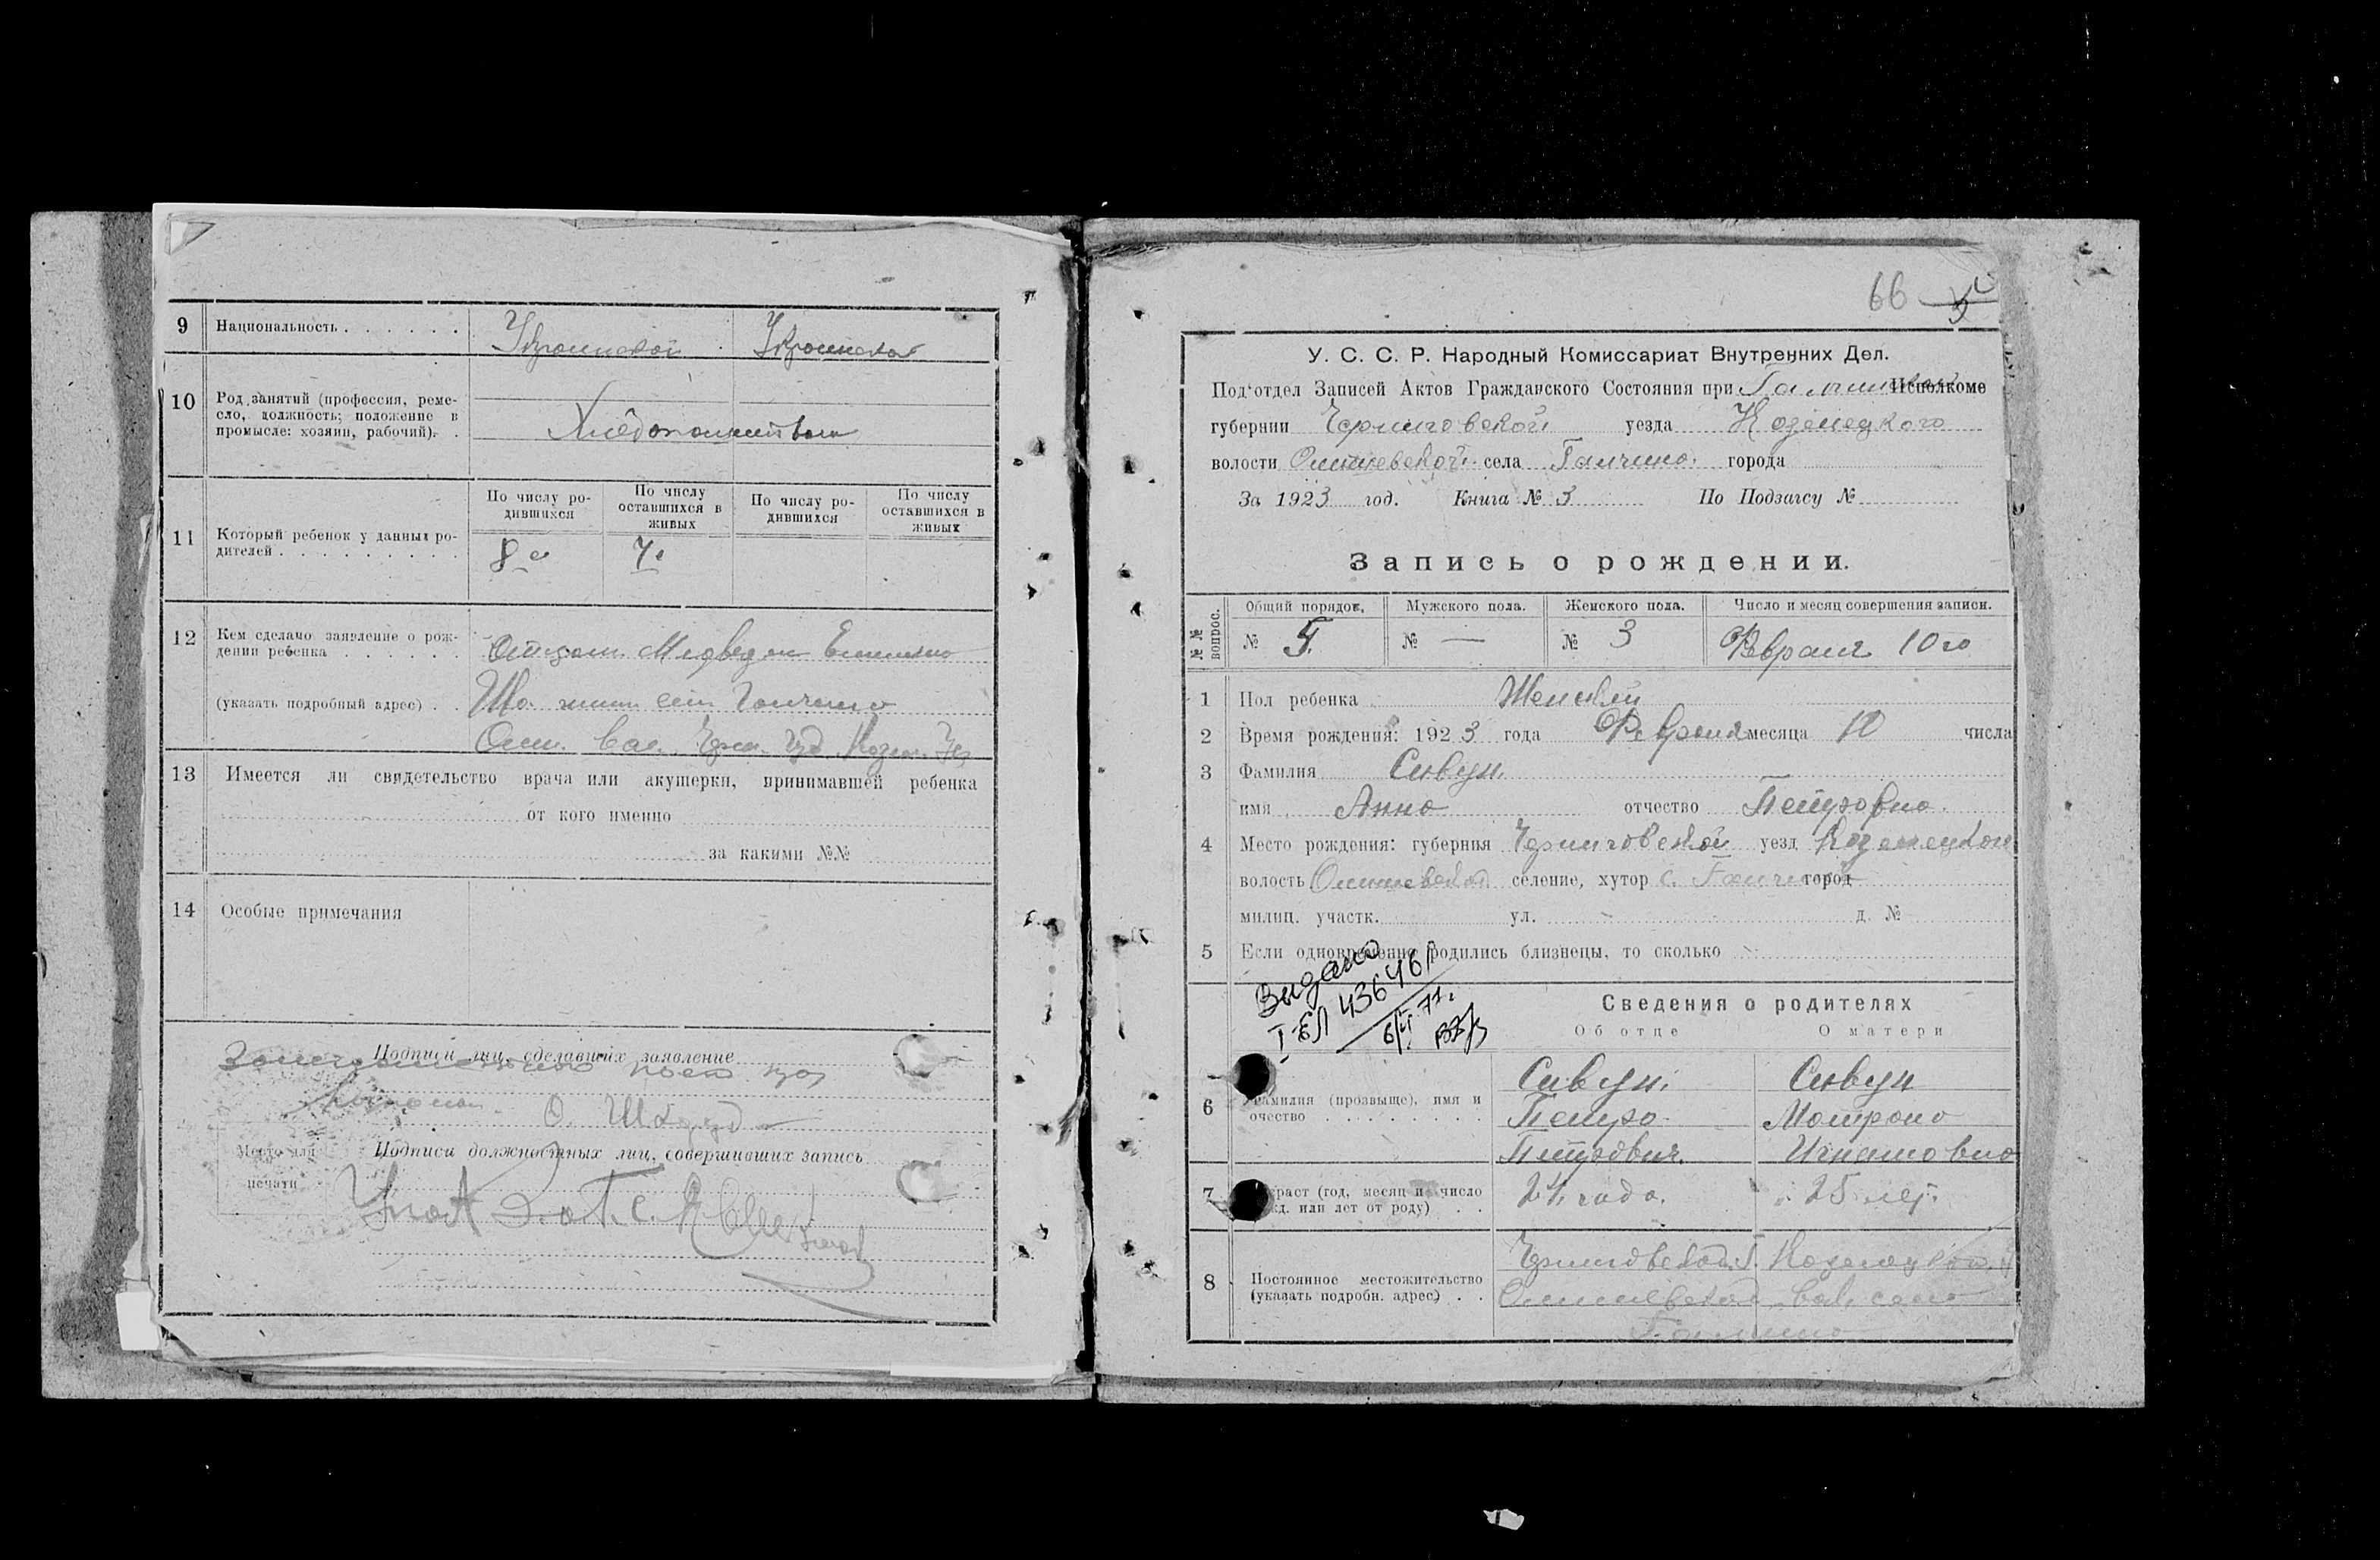 9 Национальность . . . . . . Украинской Украинской
10 Род занятий (профессия, реме-
сло, должность; положение в
промысле: хозяин, рабочий). .
Хлебопашеством
11 Который ребенок у данных ро-
дителей . . . . . . . . .
По числу ро-
дившихся
По числу
оставшихся в
живых
По числу ро-
дившихся
По числу
оставшихся в
живых
8 7
12 Кем сделано заявление о рож-
дении ребенка . . . . . .
Отцом Медведем
(указать подробный адрес) . .
13 Имеется ли свидетельство врача или акушерки, принимавшей ребенка
от кого именно
за какими №№
14 Особые примечания
Подписи лиц, сделавших заявление
О.
Место для
печати
Подписи должностных лиц, совершивших запись
66
У. С. С. Р. Народный Комиссариат Внутренних Дел.
Под‘отдел Записей Актов Гражданского Состояния при Исполкоме
губернии Черниговской уезда Козелецкого
волости Олишевской села Галчино города
За 1923 год. Книга № 3 По Подзагсу №
Запись о рождении.
№ № вопрос.
Общий порядок. Мужского пола. Женского пола. Число и месяц совершения записи.
№ 5 № — № 3 Февраля 10го
1 Пол ребенка Женский
2 Время рождения: 1923 года Февраля месяца 10 числа
3 Фамилия Сивун
имя Анна отчество Петровна
4 Место рождения: губерния Черниговской уезд Козелецкого
волость Олишевской селение, хутор с. Галчино город
милиц. участк. ул. д. №
5 Если одновременно родились близнецы, то сколько
Выдано
I-ЕЛ 436461
Сведения о родителях
Об отце О матери
6 Фамилия (прозвыще), имя и
очество . . . . . . . . .
Сивун Сивун
Петро Мотрона
Петрович Игнатовна
7 Возраст (год, месяц и число
рожд. или лет от роду) . .
24 года. 25 лет
8 Постоянное местожительство
(указать подробн. адрес) . .
Черниговской г. Козелецкого
Олишевской вол. село
Галчино